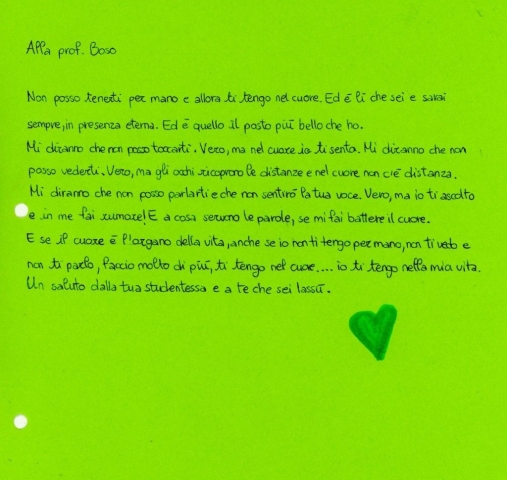 Alla prof. Boso
Non posso tenerti per mano e allora ti tengo nel cuore. Ed è lì che sei e sarai
sempre, in presenza eterna. Ed è quello il posto più bello che ho.
Mi diranno che non posso toccarti. Vero, ma nel cuore io ti sento. Mi diranno che non
posso vederti. Vero, ma gli occhi ricoprono le distanze e nel cuore non c'è distanza.
Mi diranno che non posso parlarti e che non sentirò la tua voce. Vero, ma io ti ascolto
e in me fai rumore! E a cosa servono le parole, se mi fai battere il cuore.
E se il cuore è l'organo della vita, anche se io non ti tengo per mano, non ti vedo e
non ti parlo, faccio molto di più, ti tengo nel cuore.... io ti tengo nella mia vita.
Un saluto dalla tua studentessa e a te che sei lassù.